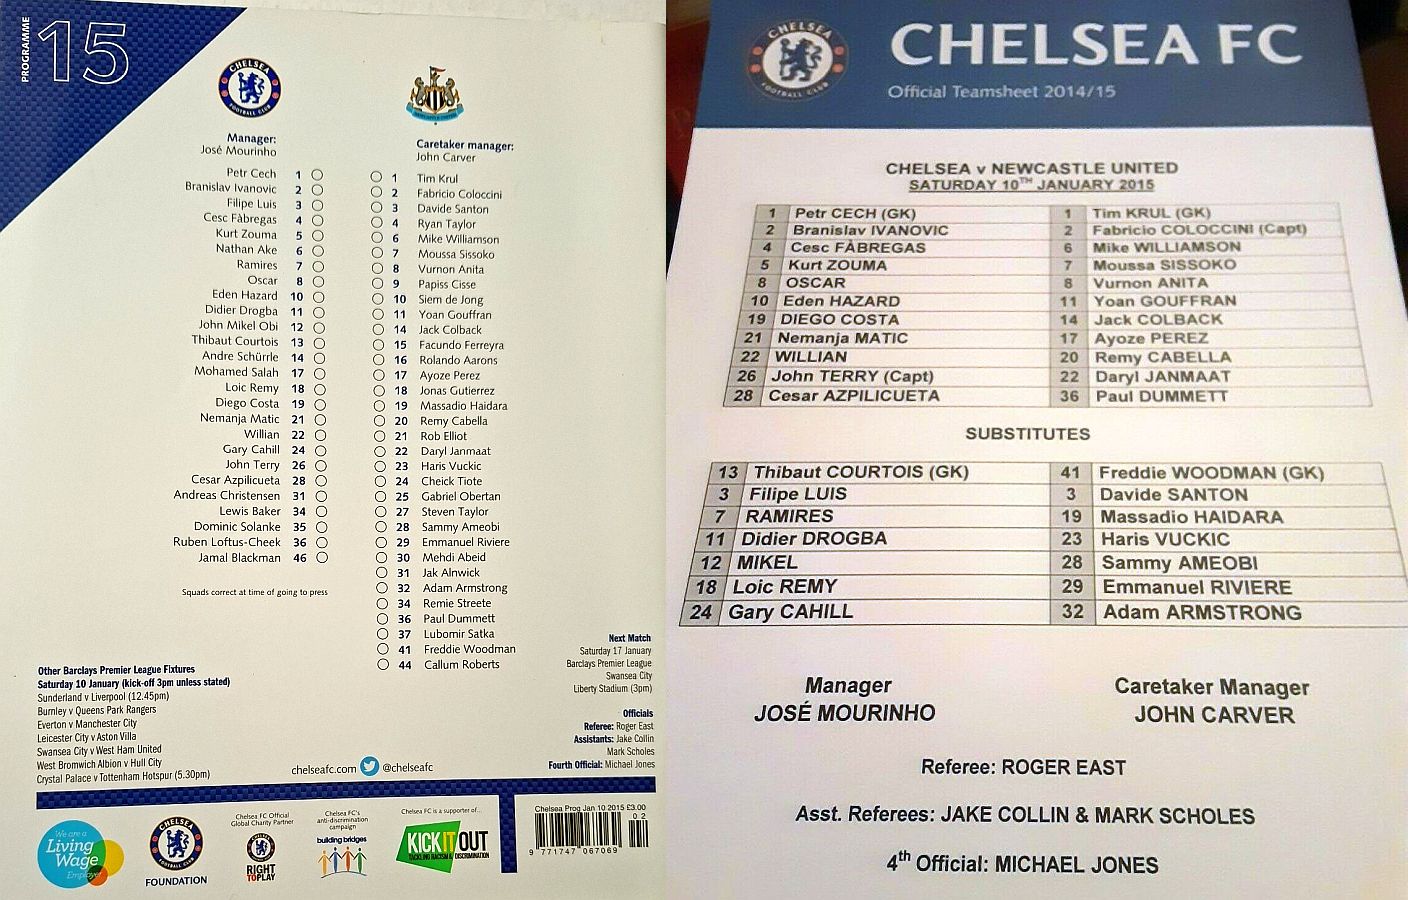 PROGRAMME
15
CHELSEA
FOOTBALL CLUB
NEWCASTLE UNITED
Manager:
José Mourinho
Petr Cech 1
Branislav Ivanovic 2
Filipe Luis 3
Cesc Fàbregas 4
Kurt Zouma 5
Nathan Ake 6
Ramires 7
Oscar 8
Eden Hazard 10
Didier Drogba 11
John Mikel Obi 12
Thibaut Courtois 13
Andre Schürrle 14
Mohamed Salah 17
Loic Remy 18
Diego Costa 19
Nemanja Matic 21
Willian 22
Gary Cahill 24
John Terry 26
Cesar Azpilicueta 28
Andreas Christensen 31
Lewis Baker 34
Dominic Solanke 35
Ruben Loftus-Cheek 36
Jamal Blackman 46
Squads correct at time of going to press
Caretaker manager:
John Carver
1 Tim Krul
2 Fabricio Coloccini
3 Davide Santon
4 Ryan Taylor
6 Mike Williamson
7 Moussa Sissoko
8 Vurnon Anita
9 Papiss Cisse
10 Siem de Jong
11 Yoan Gouffran
14 Jack Colback
15 Facundo Ferreyra
16 Rolando Aarons
17 Ayoze Perez
18 Jonas Gutierrez
19 Massadio Haidara
20 Remy Cabella
21 Rob Elliot
22 Daryl Janmaat
23 Haris Vuckic
24 Cheick Tiote
25 Gabriel Obertan
27 Steven Taylor
28 Sammy Ameobi
29 Emmanuel Riviere
30 Mehdi Abeid
31 Jak Alnwick
32 Adam Armstrong
34 Remie Streete
36 Paul Dummett
37 Lubomir Satka
41 Freddie Woodman
44 Callum Roberts
Other Barclays Premier League Fixtures
Saturday 10 January (kick-off 3pm unless stated)
Sunderland v Liverpool (12.45pm)
Burnley v Queens Park Rangers
Everton v Manchester City
Leicester City v Aston Villa
Swansea City v West Ham United
West Bromwich Albion v Hull City
Crystal Palace v Tottenham Hotspur (5.30pm)
Next Match
Saturday 17 January
Barclays Premier League
Swansea City
Liberty Stadium (3pm)
Officials
Referee: Roger East
Assistants: Jake Collin
Mark Scholes
Fourth Official: Michael Jones
chelseafc.com @chelseafc
We are a
Living
Wage
Employer
CHELSEA
FOOTBALL CLUB
FOUNDATION
Chelsea FC Official
Global Charity Partner
RIGHT
TO PLAY
Chelsea FC's
anti-discrimination
campaign
building bridges
Chelsea FC is a supporter of...
KICK IT OUT
TACKLING RACISM & DISCRIMINATION
Chelsea Prog Jan 10 2015 £3.00
02
9 771747 067069
CHELSEA
FOOTBALL CLUB
CHELSEA FC
Official Teamsheet 2014/15
CHELSEA v NEWCASTLE UNITED
SATURDAY 10TH JANUARY 2015
1 Petr CECH (GK) 1 Tim KRUL (GK)
2 Branislav IVANOVIC 2 Fabricio COLOCCINI (Capt)
4 Cesc FÀBREGAS 6 Mike WILLIAMSON
5 Kurt ZOUMA 7 Moussa SISSOKO
8 OSCAR 8 Vurnon ANITA
10 Eden HAZARD 11 Yoan GOUFFRAN
19 DIEGO COSTA 14 Jack COLBACK
21 Nemanja MATIC 17 Ayoze PEREZ
22 WILLIAN 20 Remy CABELLA
26 John TERRY (Capt) 22 Daryl JANMAAT
28 Cesar AZPILICUETA 36 Paul DUMMETT
SUBSTITUTES
13 Thibaut COURTOIS (GK) 41 Freddie WOODMAN (GK)
3 Filipe LUIS 3 Davide SANTON
7 RAMIRES 19 Massadio HAIDARA
11 Didier DROGBA 23 Haris VUCKIC
12 MIKEL 28 Sammy AMEOBI
18 Loic REMY 29 Emmanuel RIVIERE
24 Gary CAHILL 32 Adam ARMSTRONG
Manager Caretaker Manager
JOSÉ MOURINHO JOHN CARVER
Referee: ROGER EAST
Asst. Referees: JAKE COLLIN & MARK SCHOLES
4th Official: MICHAEL JONES